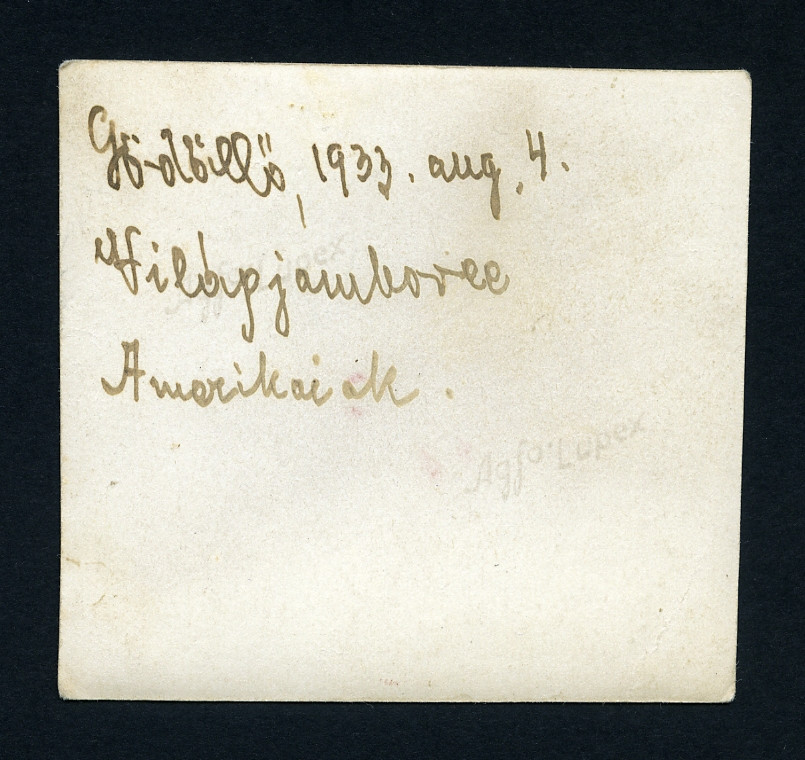 Gödöllő, 1933. aug. 4.
Világjamboree
Amerikaiak.
Agfa-Lupex
Agfa-Lupex